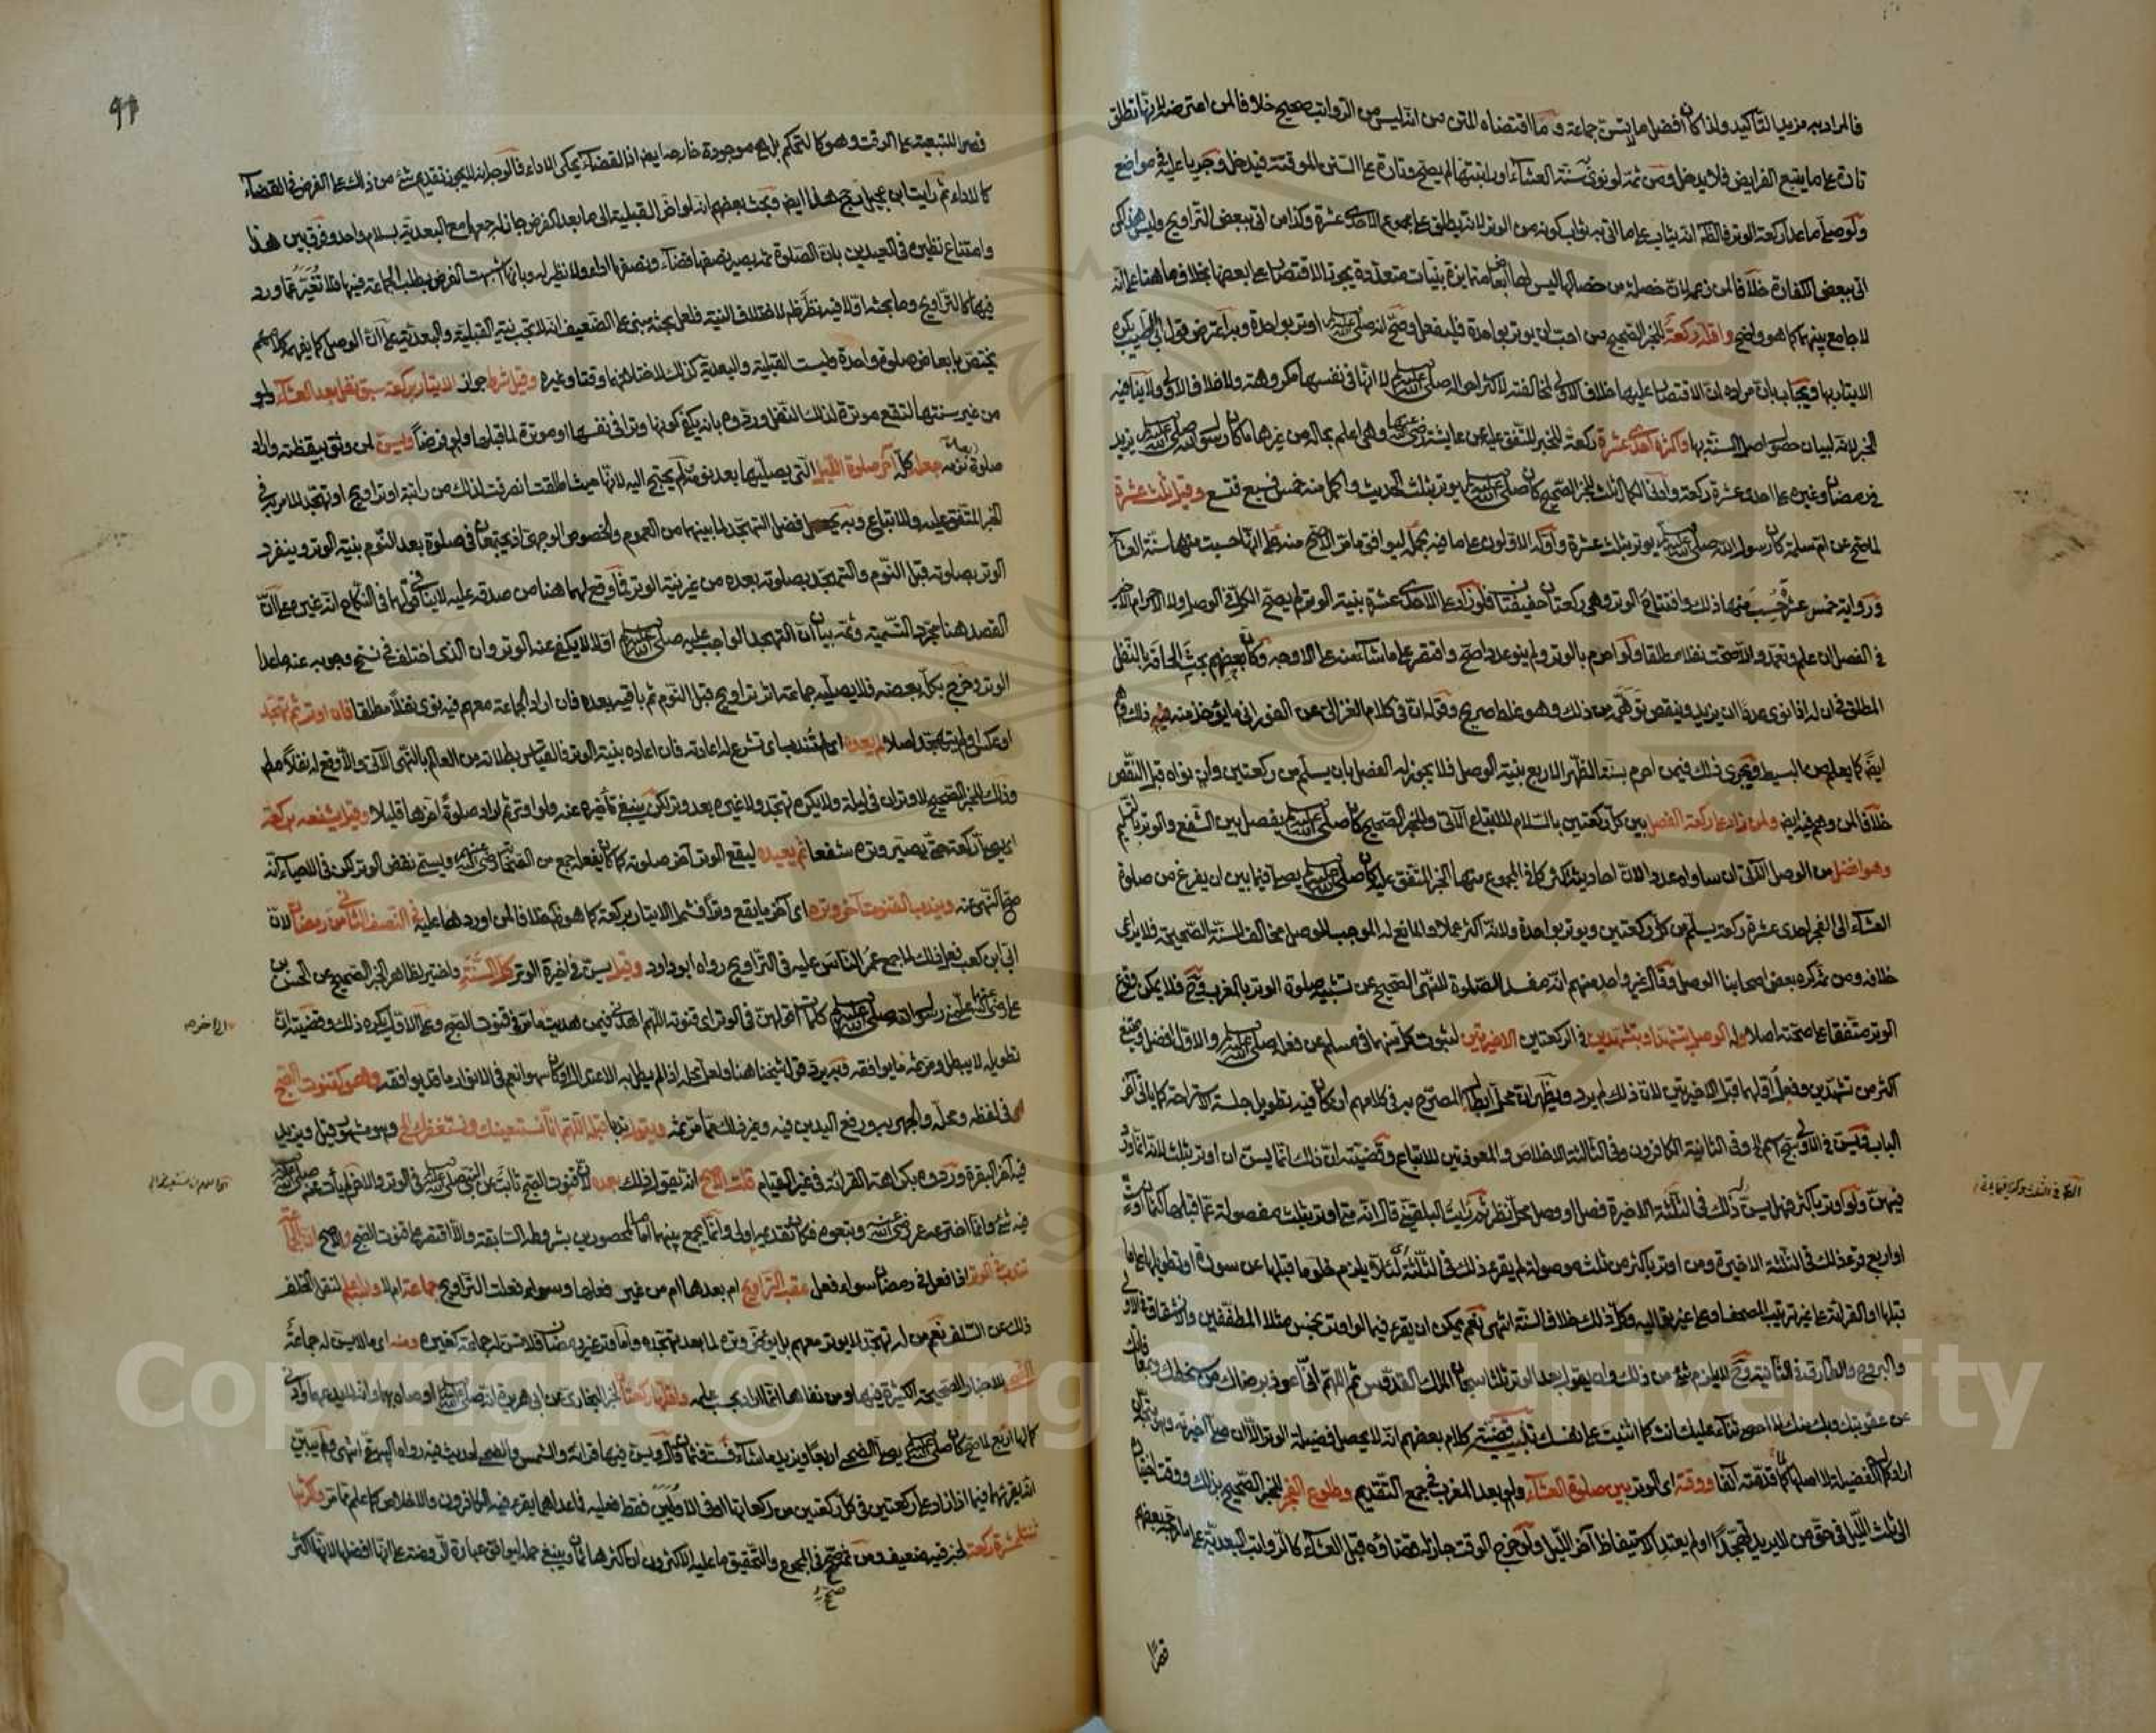 فالمراد به مزيد التأكيد ولذا كان أفضل ما لا يسن جماعة وما اقتضاه المتن من انه ليس من الرواتب صحيح خلافا لمن اعترضه لانها تطلق
تارة على ما يتبع الفرايض فلا يدخل ومن ثمة لو نوى به سنة العشاء او راتبتها لم يصح وتارة على السنن الموقتة فيدخل وجريا عليه في مواضع
ولو صلى ما عدا ركعة الوتر فالظاهر انه يثاب على ما اتى به ثواب كونه من الوتر لانه يطلق على مجموع الاحدى عشرة وكذا من اتى ببعض التراويح وليس هذا كمن
اتى ببعض الكفارة خلافا لمن زعمه لان خصلة من خصالها ليس لها ابعاض متمايزة بنيات متعددة يجوز الاقتصار على بعضها بخلاف ما هنا على انه
لا جامع بينهما كما هو واضح واقله ركعة للخبر الصحيح من احب ان يوتر بواحدة فليفعل وصح انه صلى الله عليه وسلم اوتر بواحدة وبه اعترض قول ابي الطيب يكره
الايتار بها ويجاب بان مراده ان الاقتصار عليها خلاف الاولى لمخالفته لاكثر احواله صلى الله عليه وسلم لا انها في نفسها مكروهة ولا خلاف الاولى ولا ينافيه
الخبر لانه لبيان حصول اصل السنة بها واكثره احدى عشرة ركعة للخبر المتفق عليه عن عايشة رضي الله عنها وهي اعلم بحاله من غيرها ما كان رسول الله صلى الله عليه وسلم يزيد
في رمضان وغيره على احدى عشرة ركعة وادنى الكمال ثلاث للخبر الصحيح كان صلى الله عليه وسلم يوتر بثلاث الحديث واكمل منه خمس فسبع فتسع وقيل ثلاث عشرة
لما صح عن ام سلمة كان رسول الله صلى الله عليه وسلم يوتر بثلاث عشرة واوله الاولون على ما فيه بحمله ليوافق ما مر الاصح منه على انها حسبت منها سنة العشاء
ورواية خمس عشرة حسب منها ذلك وافتتاح الوتر وهي ركعتان خفيفتان فلو زاد على الاحدى عشرة بنية الوتر لم يصح الكل في الوصل ولا الاحرام الاخير
في الفصل ان علم وتعمد والا صحت نفلا مطلقا ولو احرم بالوتر ولم ينو عددا صح واقتصر على ما شاء منه على الاوجه وكان بعضهم بحث الحاقه بالنفل
المطلق في ان له اذا نوى عددا ان يزيد وينقص توهمه من ذلك وهو غلط صريح وقوله ان في كلام الغزالي عن الفوراني ما يؤخذ منه ذلك وهم
ايضا كما يعلم من البسيط ويجري ذلك فيمن احرم بسنة الظهر الاربع بنية الوصل فلا يجوز له الفصل بان يسلم من ركعتين وان نواه قبل النقص
خلافا لمن وهم فيه ايضا ولمن زاد على ركعة الفصل بين كل ركعتين بالسلام للاتباع الآتي وللخبر الصحيح كان صلى الله عليه وسلم يفصل بين الشفع والوتر بالتسليم
وهو افضل من الوصل الآتي ان ساواه عددا لان احاديثه اكثر كما في المجموع منها الخبر المتفق عليه كان صلى الله عليه وسلم يصلي فيما بين ان يفرغ من صلوة
العشاء الى الفجر احدى عشرة ركعة يسلم من كل ركعتين ويوتر بواحدة ولانه اكثر عملا والمانع له الموجب للوصل مخالف للسنة الصحيحة فلا يراعى
خلافه ومن ثم كره بعض اصحابنا الوصل وقال غير واحد منهم انه مفسد للصلوة للنهي الصحيح عن تشبيه صلوة الوتر بالمغرب وح فلا يمكن وقوع
الوتر متفقا على صحته اصلا وله الوصل بتشهد او تشهدين في الركعتين الاخيرتين لثبوت كل منهما في مسلم عن فعله صلى الله عليه وسلم والاول افضل ويمتنع
اكثر من تشهدين وفعل اولهما قبل الاخيرتين لان ذلك لم يرد ويظهر ان محل ابطاله المصرح به في كلامهم ان كان فيه تطويل جلسة الاستراحة كما ياتي آخر
الباب ويسن في الاولى سبح اسم وفي الثانية الكافرون وفي الثالثة الاخلاص والمعوذتين للاتباع وقضيته ان ذلك انما يسن ان اوتر بثلاث لانه انما ورد
فيهن ولو اوتر باكثر فهل يسن ذلك في الثلاثة الاخيرة فصل او وصل محل نظر ثم رايت البلقيني قال انه متى اوتر بثلاث مفصولة عما قبلها كثمان او ست
او اربع قرء ذلك في الثلاثة الاخيرة ومن اوتر باكثر من ثلاث موصولة لم يقرء ذلك في الثلاثة لئلا يلزم خلو ما قبلها عن سورة او تطويلها على ما
قبلها او القراءة على غير ترتيب المصحف او على غير تواليه وكل ذلك خلاف السنة انتهى نعم يمكن ان يقرء فيما لو اوتر بخمس مثلا المطففين والانشقاق في الاولى
والبروج والطارق في الثانية وح لا يلزم شئ من ذلك وان يقول بعد الوتر ثلاثا سبحان الملك القدوس ثم اللهم اني اعوذ برضاك من سخطك وبمعافاتك
من عقوبتك وبك منك لا احصي ثناء عليك انت كما اثنيت على نفسك تنبيه قضية كلام بعضهم انه لا يحصل فضيلة الوتر الا ان صلى اخيرته
اراد كمال الفضيلة لا اصلها كما قدمته آنفا ووقته اى الوتر بين صلوة العشاء ولو بعد المغرب في جمع التقديم وطلوع الفجر للخبر الصحيح بذلك ووقت اختياره
الى ثلث الليل في حق من لا يريد تهجدا او لم يعتد الاستيقاظ آخر الليل ولو خرج الوقت جاز له قضاؤه قبل العشاء كالرواتب البعدية على ما رجحه بعضهم
قصرا
91
قصرا للتبعية على الوقت وهو كالتحكم بل هي موجودة خارجه ايضا اذ القضاء يحكى الاداء فالاوجه انه لا يجوز تقديم شئ من ذلك على الفرض في القضاء
كالاداء ثم رايت ابن عجيل رجح هذا ايضا وبحث بعضهم انه لو اخر القبلية الى ما بعد الفرض جاز له جمعها مع البعدية بسلام واحد وفرق بين هذا
وامتناع نظيره في العيدين بان الصلوة ثمة يصير نصفها قضاء ونصفها اداء ولا نظير له وبانها اشبهت الفرض بطلب الجماعة فيها فلا تغير عما ورد
فيها كالتراويح وما بحثه اولا فيه نظر ظاهر لاختلاف النية فلعل بحثه مبني على الضعيف انه لا تجب نية القبلية والبعدية على ان الوصل كما يفهمه كلامهم
يختص بابعاض صلوة واحدة وليست القبلية والبعدية كذلك لاختلافهما وقتا وغيره وقيل شرط جواز الايتار بركعة سبق نفل بعد العشاء ولو
من غير سنتها لتقع موترة لذلك النفل وردوه بانه يكفي كونها وترا في نفسها او موترة لما قبلها ولو فرضا ويسن لمن وثق بيقظته واراد
صلوة بعد نومه جعله كله آخر صلوة الليل التي يصليها بعد نومه لم يحتج اليه لانها حيث اطلقت انصرفت لذلك من راتبة او تراويح او تهجد للامر به في
الخبر المتفق عليه وللاتباع وبه يحصل فضل التهجد لما بينهما من العموم والخصوص الوجهي اذ يجتمعان في صلوة بعد النوم بنية الوتر وينفرد
الوتر بصلوته قبل النوم والتهجد بصلوته بعده من غير نية الوتر فما وقع لهما هنا من صدقه عليه لا ينافي قولهما في النكاح انه غيره على ان
القصد هنا مجرد التسمية وثمة بيان ان التهجد الواجب عليه صلى الله عليه وسلم اولا لا يكفي عنه الوتر وان الذي اختلف في نسخ وجوبه عنه ما عدا
الوتر وخرج بكله بعضه فلا يصليه جماعة اثر تراويح قبل النوم ثم باقيه بعده فان اراد الجماعة معهم فيه نوى نفلا مطلقا فان اوتر ثم تهجد
او عكس او لم يتهجد اصلا لم يعده اى لم تندب اى تشرع له اعادته فان اعاده بنية الوتر فالقياس بطلانه من العالم بالنهي الآتي والا وقع له نفلا مطلقا
وذلك للخبر الصحيح لا وتران في ليلة ولا يكره تهجد ولا غيره بعد وتر لكن ينبغي تأخيره عنه ولو اوتر ثم اراد صلوة آخرها قليلا وقيل يشفعه بركعة
اى يصلي ركعة حتى يصير وتره شفعا ثم يعيده ليقع الوتر آخر صلوته كما كان يفعله جمع من الصحابة رضي الله عنهم ويسمى نقض الوتر لكن في الاحياء انه
صح النهي عنه ويندب القنوت آخر وتره اى آخر ما يقع وترا فشمل الايتار بركعة كما هو ظاهر خلافا لمن اورد هذا عليه في النصف الثاني من رمضان لان
ابي ابن كعب فعل ذلك لما جمع عمر الناس عليه في التراويح رواه ابو داود وقيل يسن في اخيرة الوتر كل السنة واختير لظاهر الخبر الصحيح عن الحسن بن
علي رضي الله عنهما علمني رسول الله صلى الله عليه وسلم كلمات اقولهن في الوتر اى قنوته اللهم اهدني فيمن هديت ما مر في قنوت الصبح وعلى الاول يكره ذلك وقضيته ان
تطويله لا يبطل ومر ثمة ما يوافقه فبه يرد قول شيخنا هنا ولعل محله اذا لم يطل به الاعتدال والا كان سهوا نعم في الانوار ما قد يوافقه وهو كقنوت الصبح
في لفظه ومحله والجهر به ورفع اليدين فيه وغير ذلك مما مر ثمة ويقول ندبا قبله اللهم انا نستعينك ونستغفرك الخ وهو مشهور وقيل ويزيد
فيه آخر البقرة وردوه بكراهة القراءة في غير القيام قلت الاصح انه يقول ذلك بعده لان قنوت الصبح ثابت عن النبي صلى الله عليه وسلم في الوتر والآخر لم يأت عنه صلى الله عليه وسلم
فيه شئ وانما اخترعه عمر رضي الله عنه وتبعوه فكان تقديمه اولى وانما يجمع بينهما امام محصورين بشروطه السابقة والا اقتصر على قنوت الصبح والاصح ان الجماعة
تندب في الوتر اذا فعل في رمضان سواء فعل عقب التراويح ام بعدها ام من غير فعلها وسواء فعلت التراويح جماعة ام لا والله اعلم لنقل الخلف
ذلك عن السلف نعم من له تهجد لا يوتر معهم بل يؤخر وتره لما بعد تهجده واما وتر غير رمضان فلا تسن له جماعة كغيره ومنه اى ما لا يسن له جماعة
الضحى للاخبار الصحيحة الكثيرة فيها ومن نفاها انما اراد بحسب علمه واقلها ركعتان لخبر البخاري عن ابي هريرة انه صلى الله عليه وسلم اوصاه بهما وانه لا يدعهما وادنى
كمالها اربع لما صح كان صلى الله عليه وسلم يصلي الضحى اربعا ويزيد ما شاء فست فثمان قال ويسن فيها قراءة والشمس والضحى لحديث فيه رواه البيهقي انتهى ولم يبين
انه يقرئهما فيما اذا زاد على ركعتين في كل ركعتين من ركعاتها او في الاوليين فقط فعليه فما عداهما يقرء فيه الكافرون والاخلاص كما علم مما مر واكثرها
ثنتا عشرة ركعة لخبر فيه ضعيف ومن ثم صح في المجموع والتحقيق ما عليه الاكثرون ان اكثرها ثمان وينبغي حمله ليوافق عبارة الروضة على انها افضلها لا انها اكثر
صح